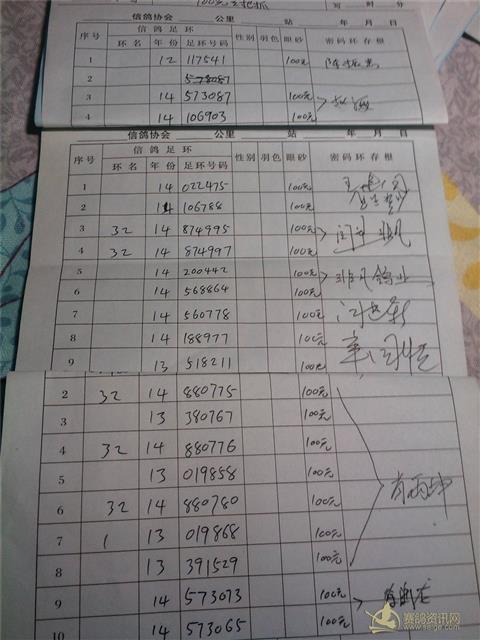 100元
信鸽协会 公里 站 年 月 日
序号 信鸽足环 性别 羽色 眼砂 密码环存根
环名 年份 足环号码
1 12 117541 100元
2 573087
3 14 573087 100元
4 14 106903 100元
信鸽协会 公里 站 年 月 日
序号 信鸽足环 性别 羽色 眼砂 密码环存根
环名 年份 足环号码
1 14 022475 100元
2 14 106788 100元
3 32 14 874995 100元
4 32 14 874997 100元
5 14 200442 100元 非凡鸽业
6 14 568864 100元
7 14 660778 100元
8 14 188977 100元
9 13 518211 100元
2 32 14 880775 100元
3 13 380767 100元
4 32 14 880776 100元
5 13 019858 100元
6 32 14 880780 100元
7 1 13 019868 100元
8 13 391529 100元
9 14 573073 100元
10 14 573065 100元
赛鸽资讯网